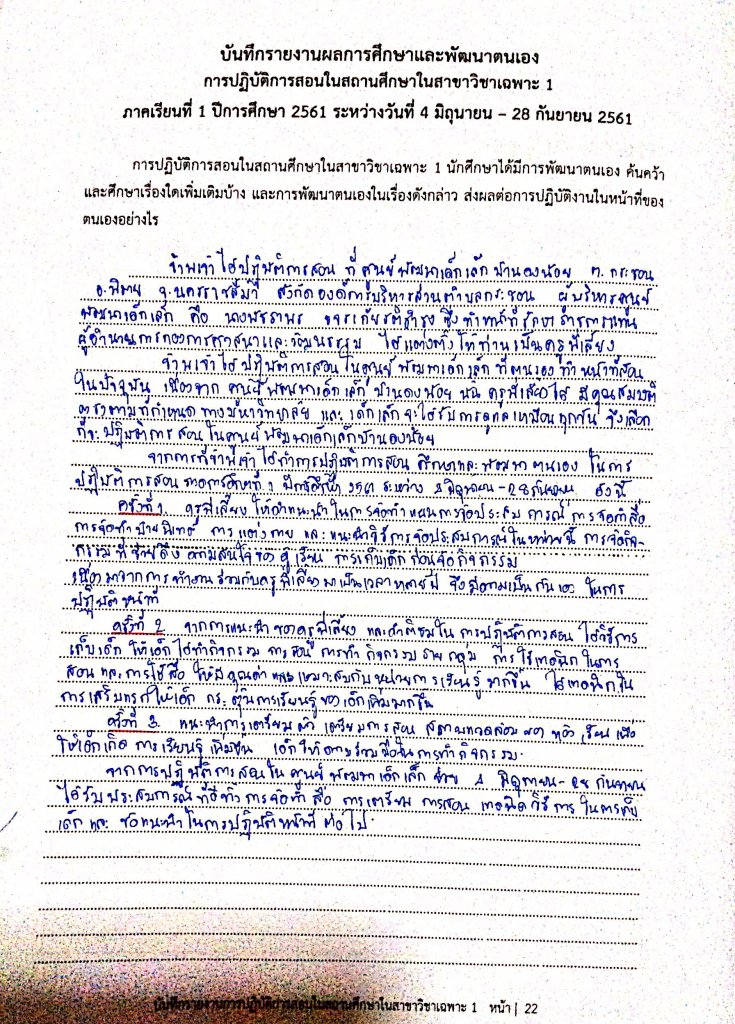 บันทึกรายงานผลการศึกษาและพัฒนาตนเอง
การปฏิบัติการสอนในสถานศึกษาในสาขาวิชาเฉพาะ 1
ภาคเรียนที่ 1 ปีการศึกษา 2561 ระหว่างวันที่ 4 มิถุนายน – 28 กันยายน 2561
การปฏิบัติการสอนในสถานศึกษาในสาขาวิชาเฉพาะ 1 นักศึกษาได้มีการพัฒนาตนเอง ค้นคว้า
และศึกษาเรื่องใดเพิ่มเติมบ้าง และการพัฒนาตนเองในเรื่องดังกล่าว ส่งผลต่อการปฏิบัติงานในหน้าที่ของ
ตนเองอย่างไร
ข้าพเจ้าได้ปฏิบัติการสอน ที่ศูนย์พัฒนาเด็กเล็กบ้านดงน้อย ต. กระชอน
อ.พิมาย จ.นครราชสีมา สังกัดองค์การบริหารส่วนตำบลกระชอน ผู้บริหารศูนย์
พัฒนาเด็กเล็ก คือ ซึ่งทำหน้าที่รักษาราชการแทน
ผู้อำนวยการกองการศาสนาและวัฒนธรรม ได้แต่งตั้งให้ท่านเป็นครูพี่เลี้ยง
ข้าพเจ้าได้ปฏิบัติการสอนในศูนย์พัฒนาเด็กเล็กที่ตนเองทำหน้าที่สอน
ในปัจจุบัน เนื่องจาก ศูนย์พัฒนาเด็กเล็กบ้านดงน้อย นั้น ครูพี่เลี้ยงได้ มีคุณสมบัติ
ตรงตามที่กำหนดทางมหาวิทยาลัย และเด็กเล็กจะได้รับการดูแลเหมือนทุกวัน จึงเลือก
ที่จะปฏิบัติการสอนในศูนย์พัฒนาเด็กเล็กบ้านดงน้อย
จากการที่ข้าพเจ้าได้ทำการปฏิบัติการสอน ศึกษาและพัฒนาตนเอง ในการ
ปฏิบัติการสอน ภาคการศึกษาที่ 1 ปีการศึกษา 2561 ระหว่าง 4 มิถุนายน - 28 กันยายน ดังนี้
ครั้งที่ 1 ครูพี่เลี้ยงให้คำแนะนำในการจัดทำแผนการจัดประสบการณ์ การจัดทำสื่อ
การจัดทำป้ายนิเทศ การแต่งกาย และแนะนำวิธีการจัดประสบการณ์ในหน่วยนี้ การจัดกิจ-
กรรมที่ ความสนใจของผู้เรียน การเก็บเด็กก่อนจัดกิจกรรม
เนื่องมาจากการทำงานร่วมกับครูพี่เลี้ยงมาเป็นเวลาหลายปี จึงมีความเป็นกันเอง ในการ
ปฏิบัติหน้าที่
ครั้งที่ 2 จากการแนะนำของครูพี่เลี้ยง และคำติชมในการปฏิบัติการสอน ได้วิธีการ
เก็บเด็ก ให้เด็กได้ทำกิจกรรม การสอน การทำกิจกรรมรายกลุ่ม การใช้เทคนิคในการ
สอน และการใช้สื่อ ให้มีคุณค่า และเหมาะสมกับหน่วยการเรียนรู้มากขึ้น ได้เทคนิคใน
การเสริมแรงให้เด็ก กระตุ้นการเรียนรู้ของเด็กเพิ่มมากขึ้น
ครั้งที่ 3. แนะนำการเตรียมตัว เตรียมการสอน สภาพแวดล้อมของห้องเรียน เพื่อ
ให้เด็กเกิดการเรียนรู้เพิ่มขึ้น เด็กให้ความร่วมมือในการทำกิจกรรม
จากการปฏิบัติการสอนในศูนย์พัฒนาเด็กเล็ก 4 มิถุนายน - 28 กันยายน
ได้รับประสบการณ์ การจัดทำสื่อ การเตรียมการสอน เทคนิควิธีการในการเก็บ
เด็ก และข้อแนะนำในการปฏิบัติหน้าที่ต่อไป
บันทึกรายงานการปฏิบัติการสอนในสถานศึกษาในสาขาวิชาเฉพาะ 1 หน้า | 22